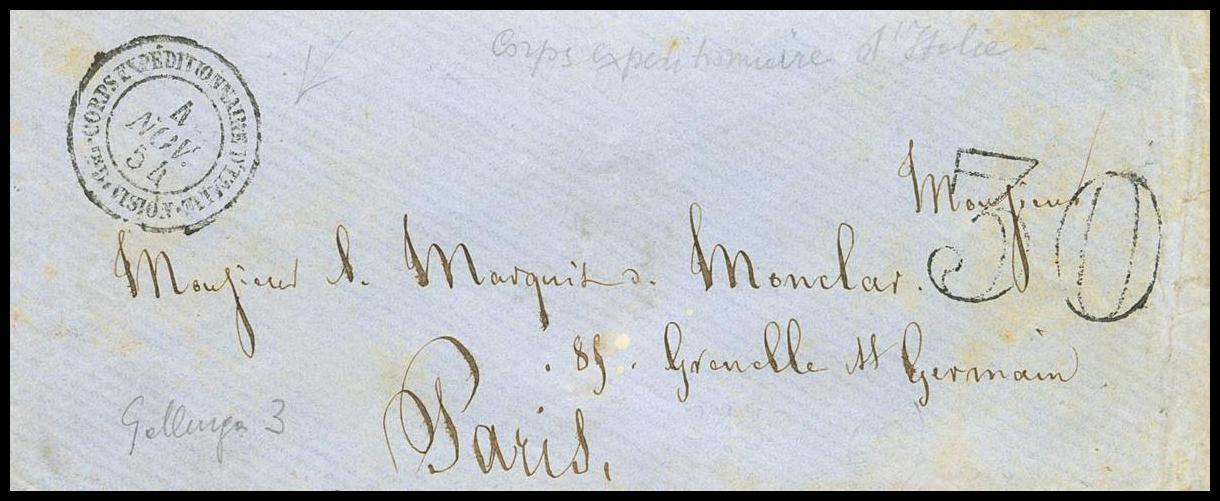 Corps expeditionnaire d'Italie
CORPS EXPÉDITIONNAIRE D'ITALIE
4
NOV.
54
30
Monsieur
Monsieur l. Marquis d. Monclar.
85. Grenelle St Germain
Paris.
3